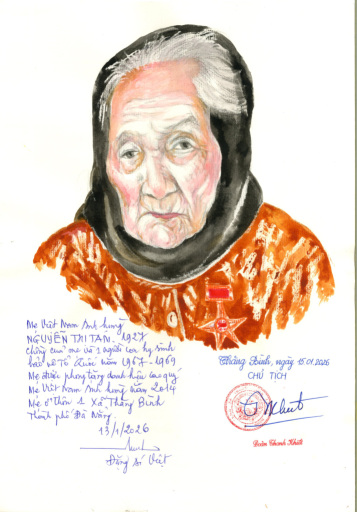 Mẹ Việt Nam Anh hùng
NGUYỄN THỊ TÁM. 1927
Chồng của mẹ và 2 người con hy sinh
bảo vệ Tổ Quốc năm 1967-1969
Mẹ được phong tặng danh hiệu cao quý
Mẹ Việt Nam Anh hùng năm 2014
Mẹ ở thôn 1 Xã Thăng Bình
Thành phố Đà Nẵng.
13/1/2026
Đặng Ái Việt
Thăng Bình, ngày 15.01.2026
CHỦ TỊCH
Đoàn Thanh Khiết